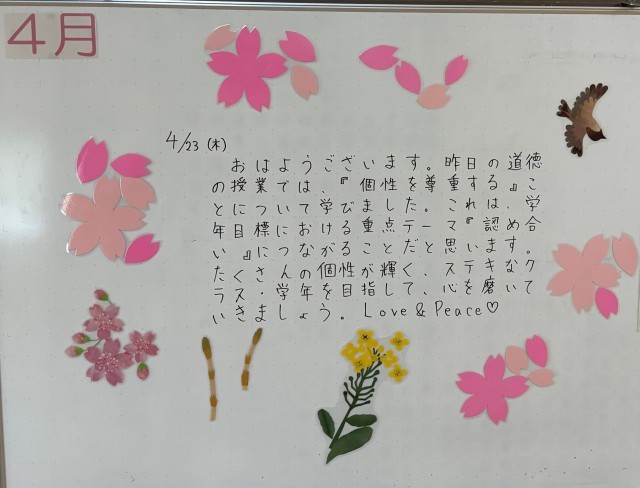 4月
4/23 (木)
おはようございます。昨日の道徳
の授業では、『個性を尊重する』こ
とについて学びました。これは、学
年目標における重点テーマ『認め合
い』につながることだと思います。
たくさんの個性が輝く、ステキなク
ラス・学年を目指して、心を磨いて
いきましょう。Love & Peace♡